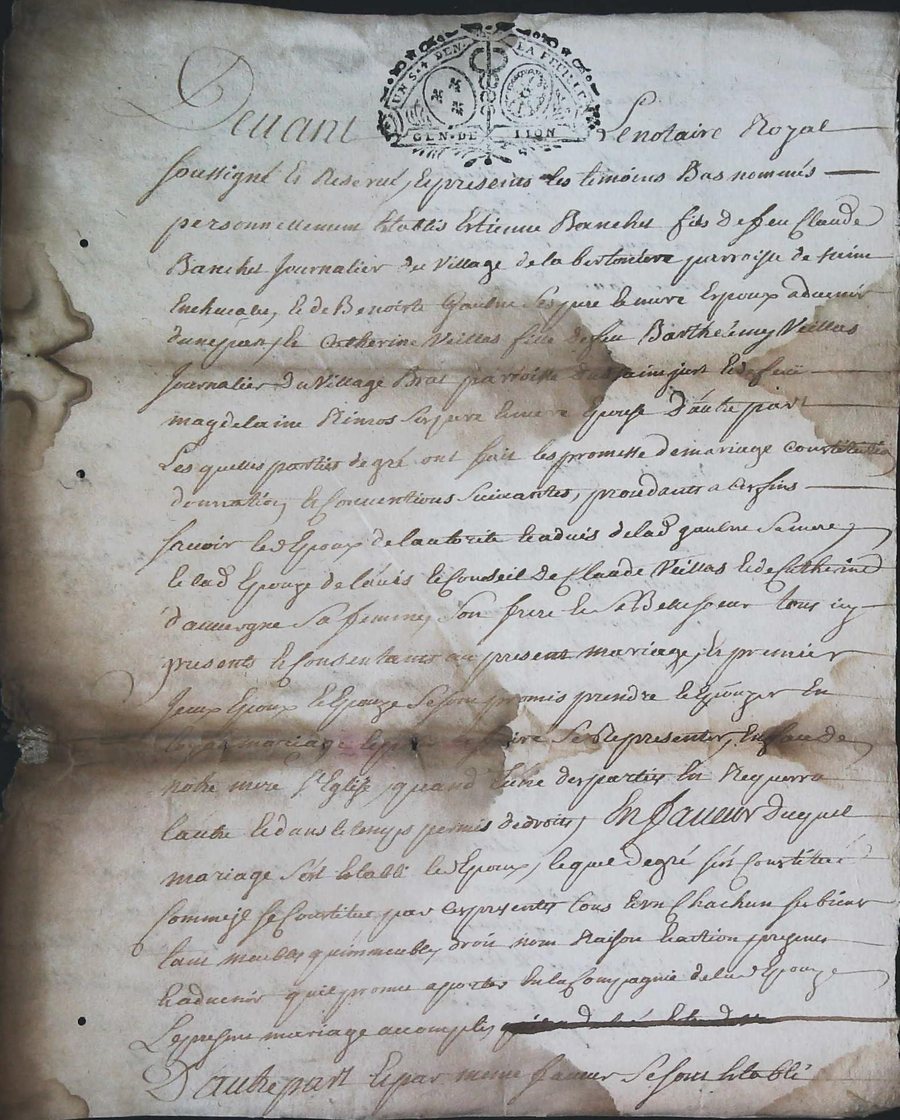 UN S. 4 DEN. LA FEUILLE
GEN. DE LION
Devant Le notaire Royal
soussigné et Reservé, et presents les témoins Bas nommés
personnellement Etablis Estienne Banchet fils de feu Claude
Banchet Journalier du Village de la parroisse de
et de Benoiste Gaulne ses pere et mere Epoux advenir
d'une part, et Catherine Veillas fille de feu Barthelemy Veillas
Journalier du Village parroisse de saint just et de feüe
magdelaine Rimos ses pere et mere Epouse D'autre part
Les quelles parties de gré ont fait les promesse de mariage constitution
donnation, et Conventions suivantes, procedants a ces fins
savoir led Epoux de l'autorité et advis de lad gaulne sa mere
et lad Epouze de l'avis et Conseil de Claude Veillas et de Catherine
d'auvergne sa femme, son frere et sa Belle soeur tous icy
presents et Consentants au present mariage, et premier
Iceux Epoux et Epouze se sont promis prendre et Epouzer En
mariage se Representer, En face de
notre mere Ste Eglise, quand l'une des parties En Requerra
l'autre et dans le temps permis de droits, En faveur Duquel
mariage s'est Etabli led Epoux, lequel de gré s'est Constitué
Comme il se Constitue par ces presentes tous et un Chachun ses biens
tant meubles qu'immeubles, droit nom Raison et action presents
et advenir quil promet apporter En la Compagnie de lad Epouze
Le present mariage accomply,
D'autre part et par meme faveur se sont Etabli